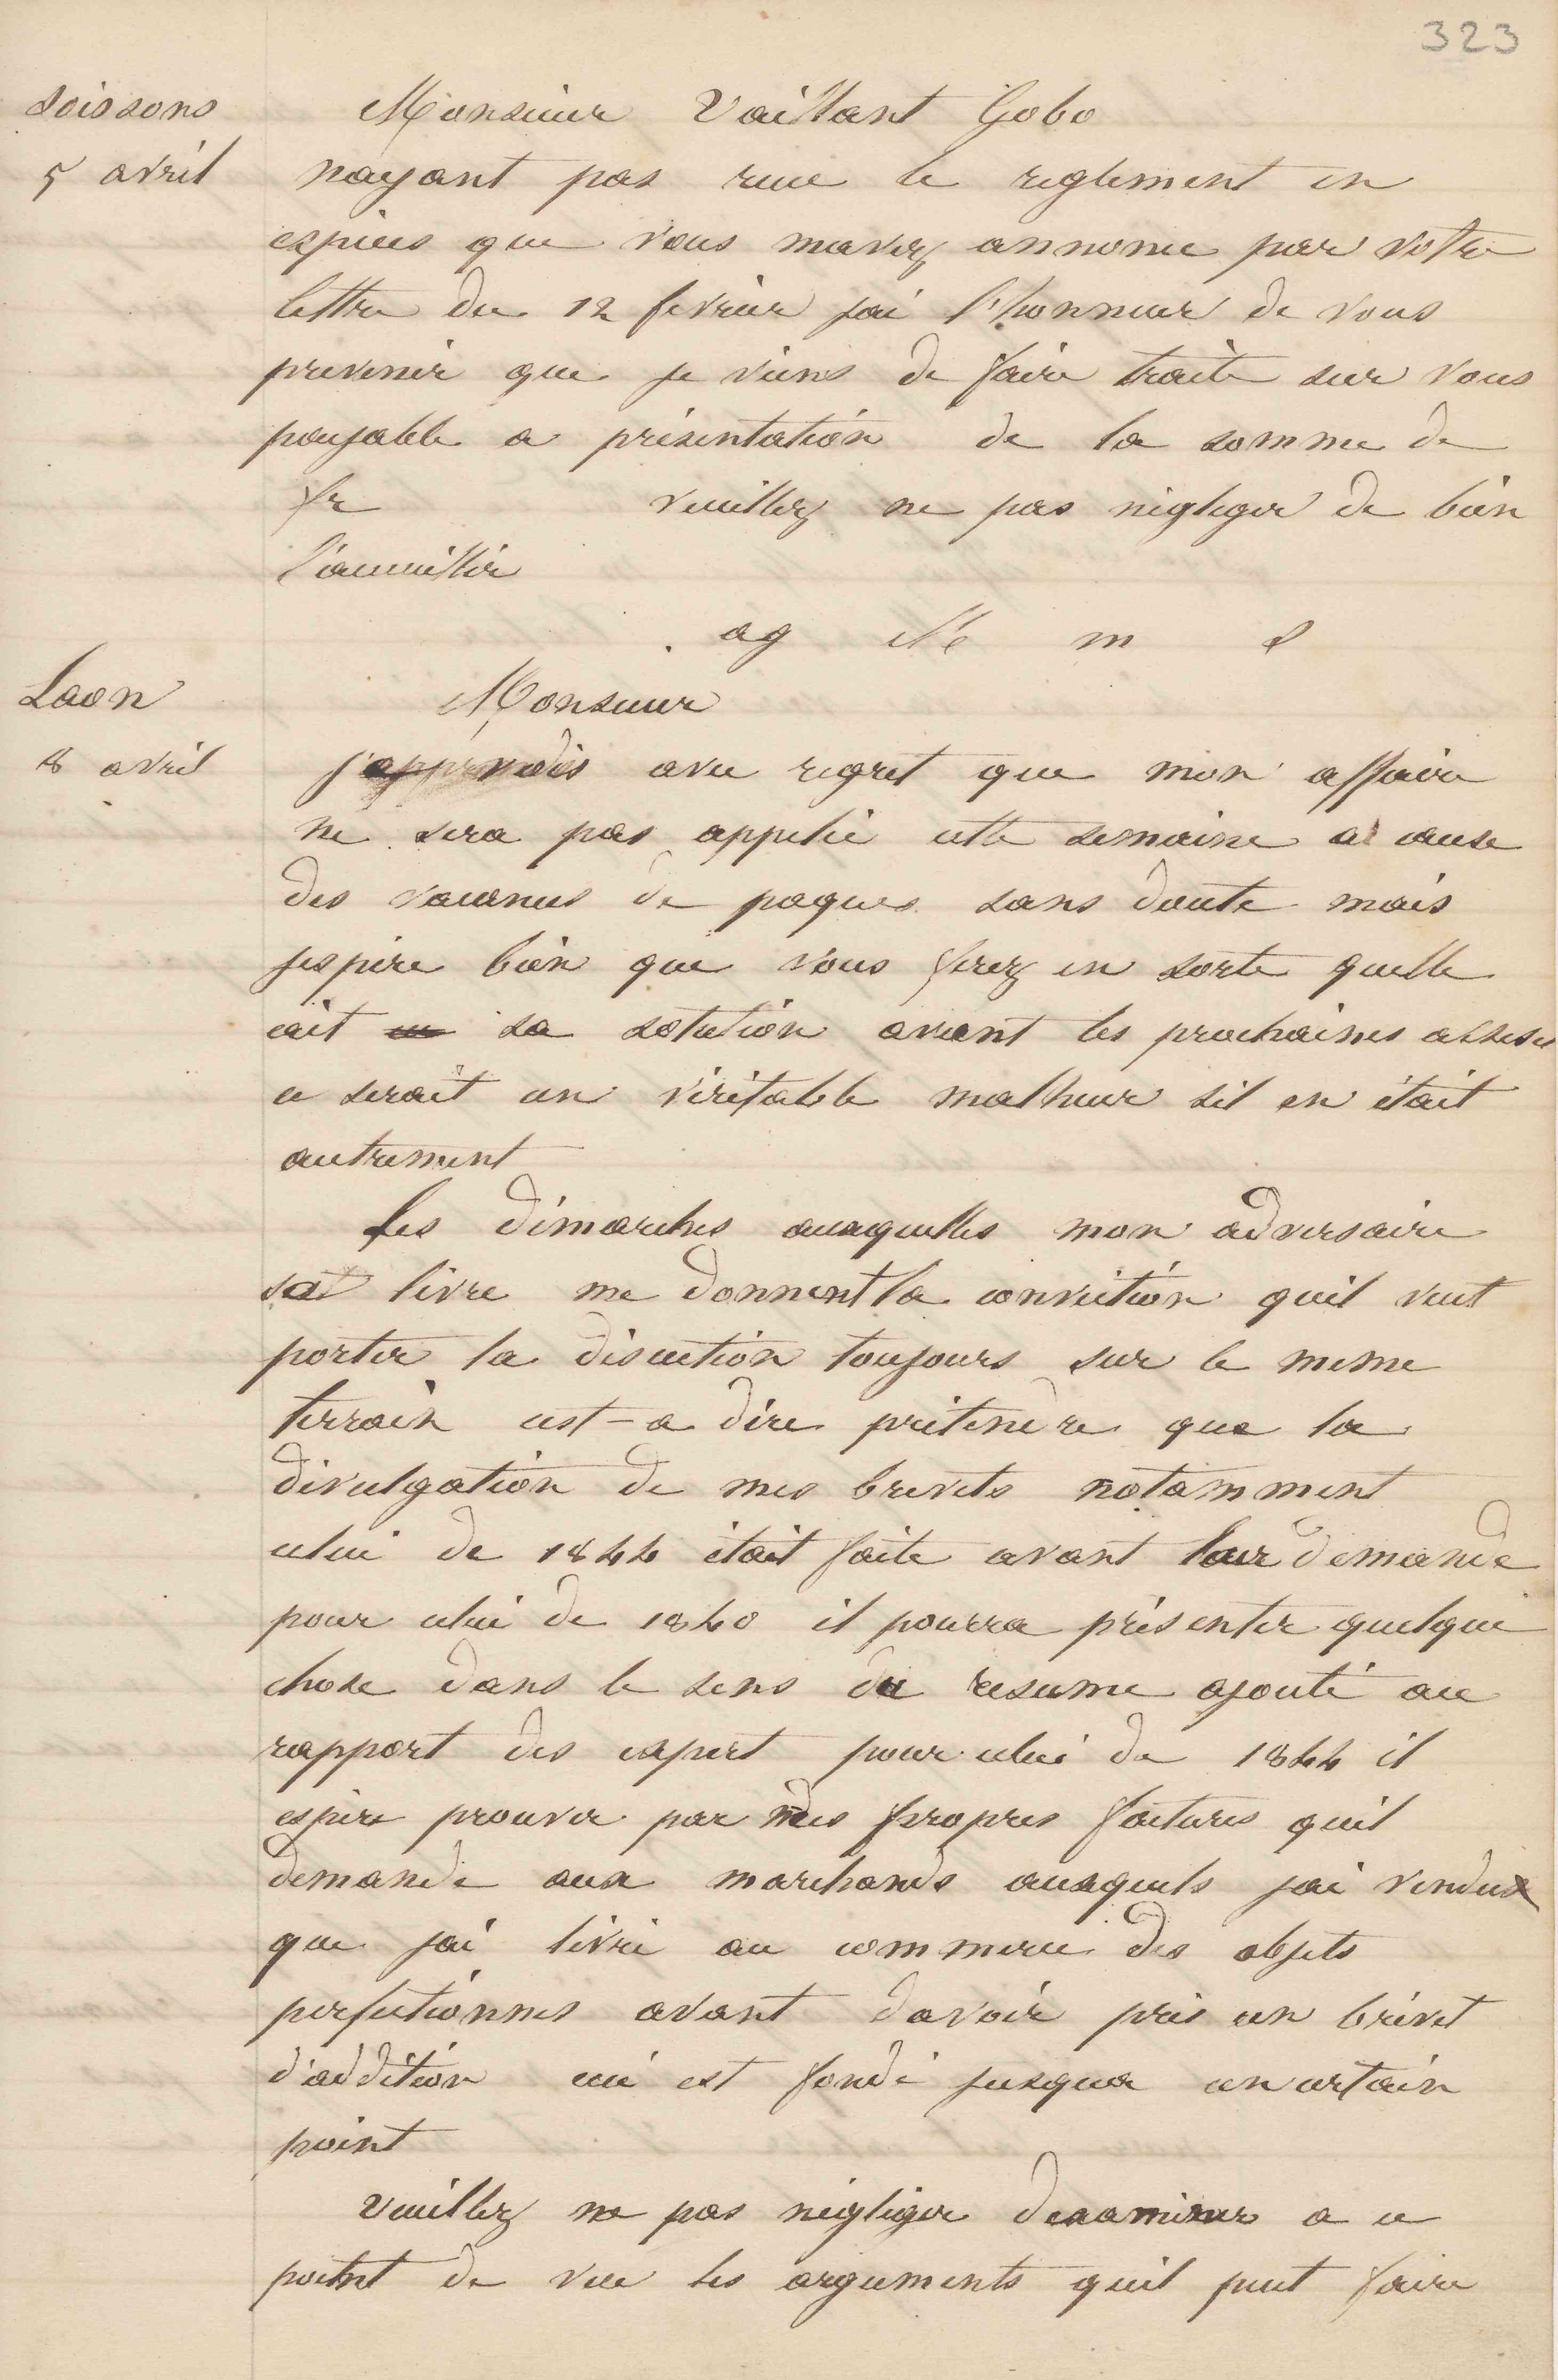 323
Soissons
5 avril
Monsieur Vaillant Gobo
nayant pas recu le reglement en
espèces que vous mavez annonce par votre
lettre du 12 fevrier jai l'honneur de vous
prevenir que je viens de faire traite sur vous
payable a présentation de la somme de
fr veuillez ne pas négliger de bien
l'accueillir
ag Me m s
Laon
8 avril
Monsieur
j'apprends avec regret que mon affaire
ne sera pas appelée cette semaine a cause
des vacances de paques sans doute mais
jespère bien que vous ferez en sorte quelle
ait sa solution avant les prochaines assises
ce serait un véritable malheur sil en était
autrement
Les démarches auxquelles mon adversaire
se livre me donnent la conviction quil veut
porter la discution toujours sur le meme
terrain cest-a dire prétendre que la
divulgation de mes brevets notamment
celui de 1844 était faite avant leur demande
pour celui de 1840 il pourra présenter quelque
chose dans le sens du resume ajouté au
rapport des expert pour celui de 1844 il
espère prouver par mes propres factures quil
demande aux marchands auxquels jai vendu
que jai livré au commerce des objets
perfectionnes avant davoir pris un brevet
d'addition ceci est fondé jusqua un certain
point
Veuillez ne pas négliger dexaminer a ce
point de vue les arguments quil peut faire